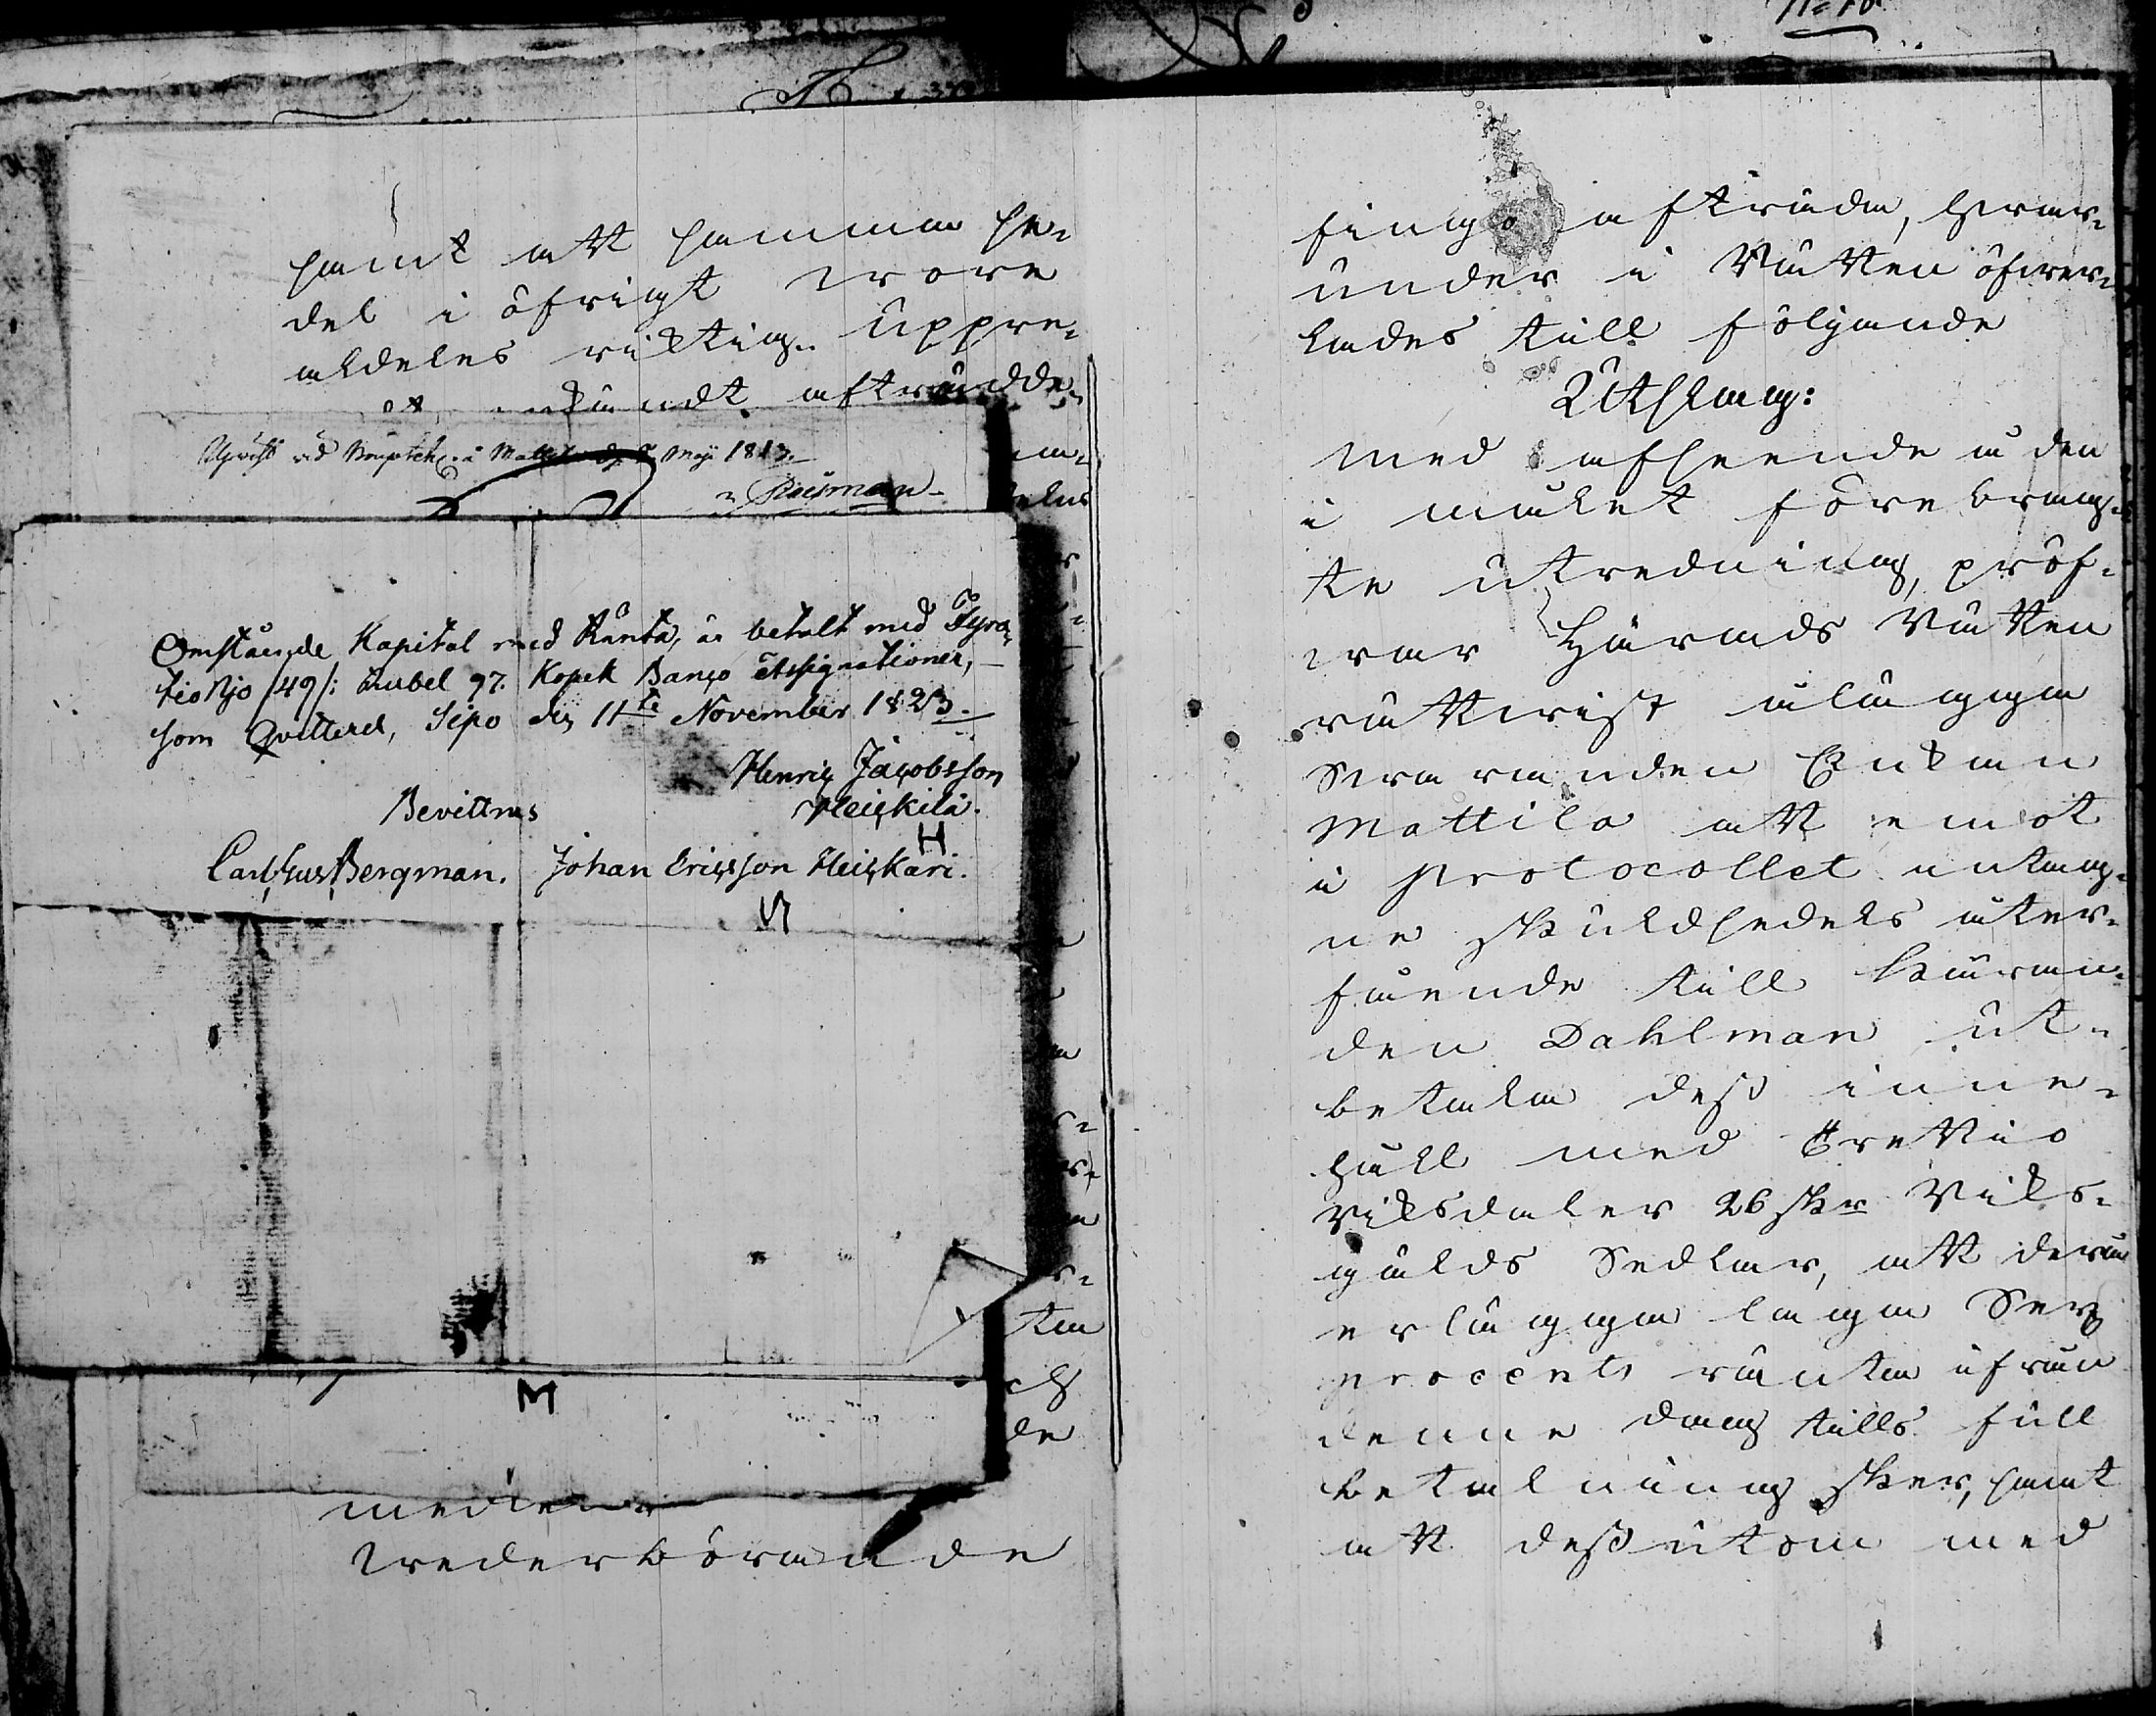 samt att samma se-
del i öfrigt wore
aldeles riktig. Uppre-
afträdde
Upvist vid Maji 1817.
Omstående Kapital med Ränta, är betalt med Fyra
tio Njo /49/: Rubel 97. Kopek Banco Assignationer,
som Qvitteres, Sipo den 11te November 1823.
Henric Jacobsson
Bevittnas Heickilä.
H
Carl Gust Bergman. Johan Ericsson Heickari.
medlen
wederbörande
fingo afträda, hwar-
under i Rätten öfwer-
lades till följande
Utslag:
Med afseende å den
i målet förebrag-
te utredning, pröf-
war Härads Rätten
rättwist ålägga
Swaranden Enkan
Mattila att emot
i Protocollet intag-
ne skuldsedels åter-
fående till Käran-
den Dahlman ut-
betala dess inne-
håll med Trettio
Riksdaler 26 skr Riks-
gälds Sedlar, att derå
erlägga laga Sex
procents ränta ifrån
denne dag tills full
betalning sker, samt
att dessutom med